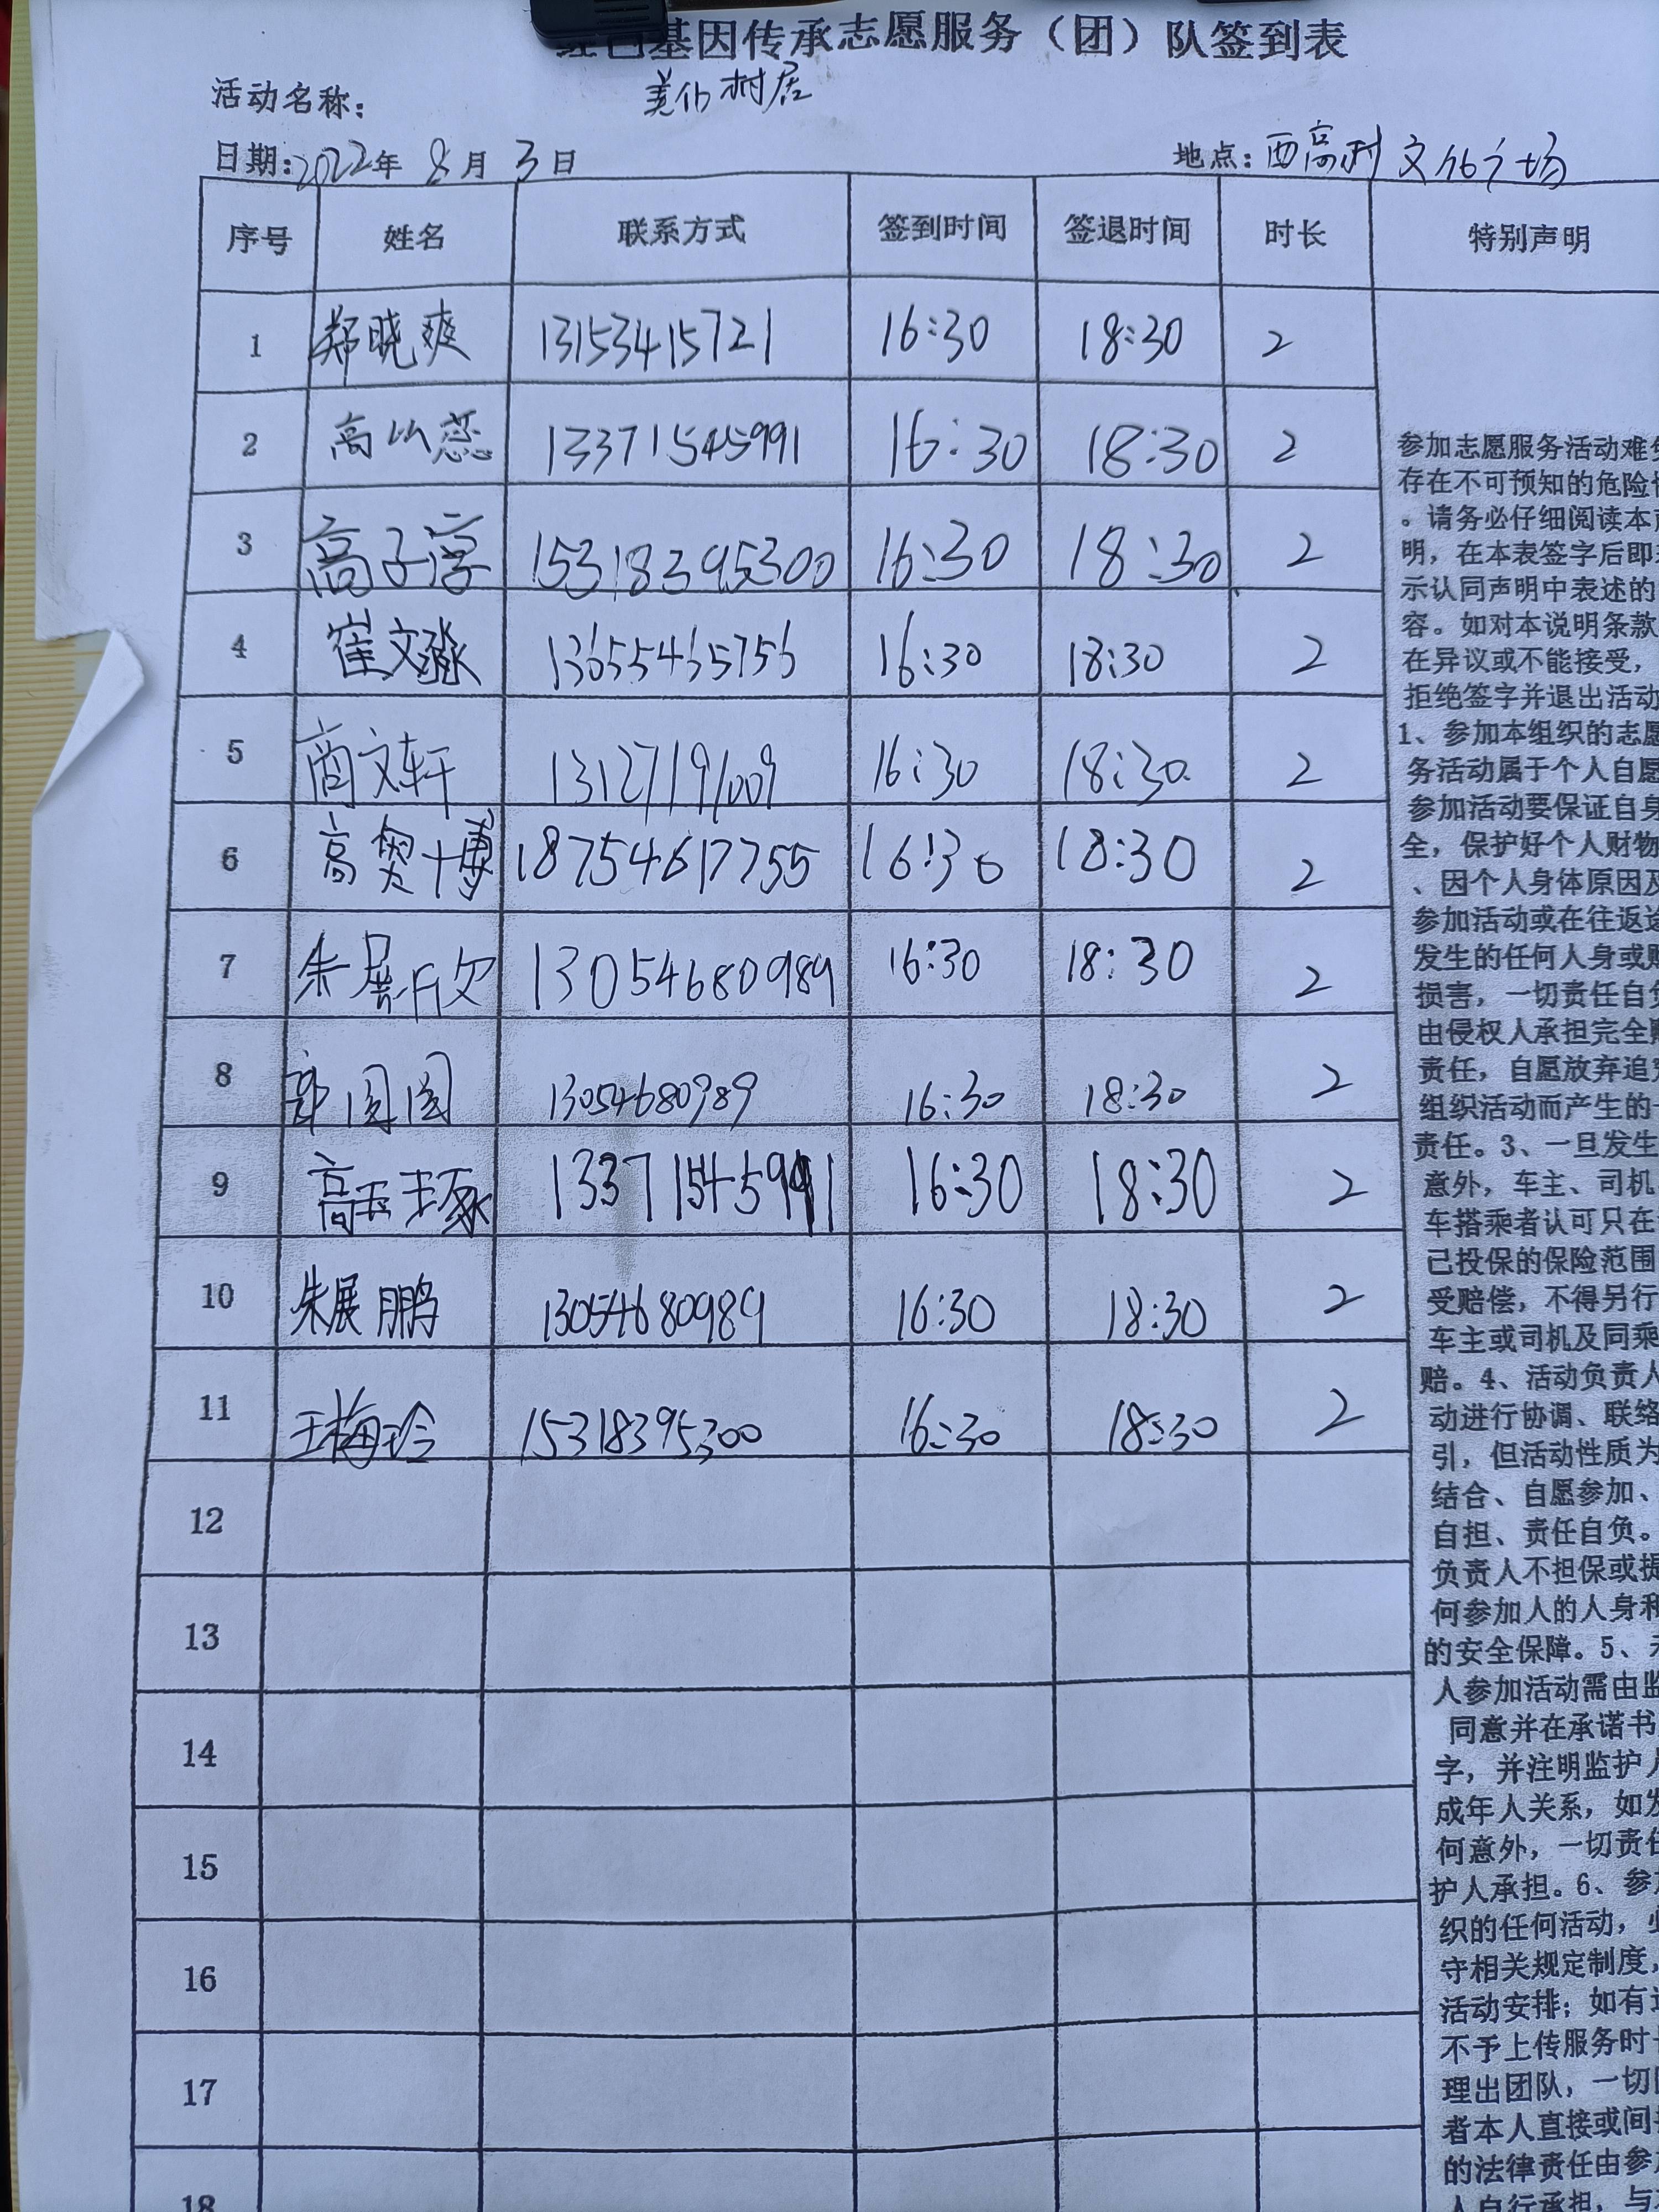 基因传承志愿服务（团）队签到表
活动名称： 美化村居
日期：2022年 8月 3日 地点：西高村文化广场
序号 姓名 联系方式 签到时间 签退时间 时长 特别声明
1 郑晓爽 13153415721 16:30 18:30 2
2 高山蕊 13371545991 16:30 18:30 2
3 高子淳 15318395300 16:30 18:30 2
4 崔文淼 13655465756 16:30 18:30 2
5 商文轩 13127191009 16:30 18:30 2
6 高奥博 18754617755 16:30 18:30 2
7 朱展欣 13054680989 16:30 18:30 2
8 郭圆圆 13054680989 16:30 18:30 2
9 高玉琢 13371545991 16:30 18:30 2
10 朱展鹏 13054680989 16:30 18:30 2
11 王梅玲 15318395300 16:30 18:30 2
12
13
14
15
16
17
18
参加志愿服务活动难
存在不可预知的危险
。请务必仔细阅读本
明，在本表签字后即
示认同声明中表述的
容。如对本说明条款
在异议或不能接受，
拒绝签字并退出活动
1、参加本组织的志愿
务活动属于个人自愿
参加活动要保证自身
全，保护好个人财物
、因个人身体原因及
参加活动或在往返途
发生的任何人身或
损害，一切责任自负
由侵权人承担完全
责任，自愿放弃追
组织活动而产生的
责任。3、一旦发生
意外，车主、司机
车搭乘者认可只在
已投保的保险范围
受赔偿，不得另行
车主或司机及同乘
赔。4、活动负责人
动进行协调、联络
引，但活动性质为
结合、自愿参加、
自担、责任自负。
负责人不担保或提
何参加人的人身和
的安全保障。5、
人参加活动需由监
同意并在承诺书
字，并注明监护人
成年人关系，如发
何意外，一切责任
护人承担。6、参
织的任何活动，
守相关规定制度，
活动安排；如有
不予上传服务时
理出团队，一切
者本人直接或间
的法律责任由参
人自行承担，与